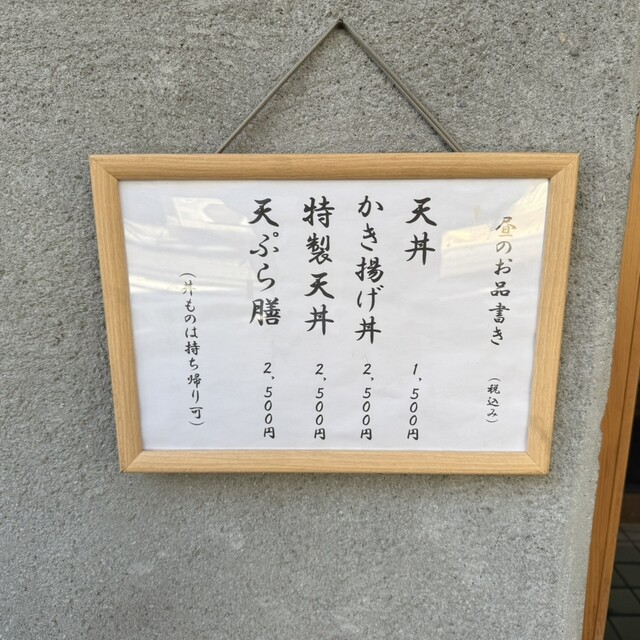 昼のお品書き (税込み)
天丼 1,500円
かき揚げ丼 2,500円
特製天丼 2,500円
天ぷら膳 2,500円
(丼ものは持ち帰り可)